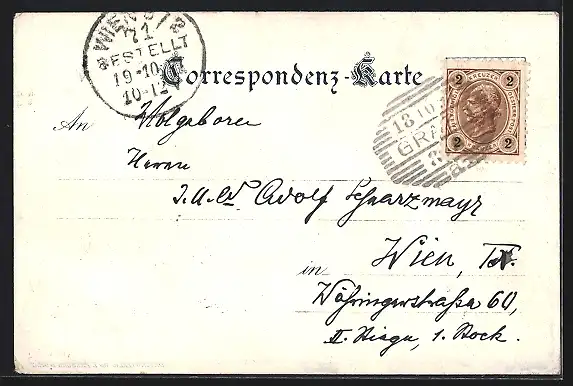 WIEN 9/2
71
BESTELLT
19·10
10-12
Correspondenz-Karte
2 KREUZER 2
2 2
18 10
GRA
An Wolgeboren
Herrn
J.U.Dr Adolf Schwarzmayr
in Wien, IX.
Währingerstraße 60,
II. Stiege, 1. Stock.